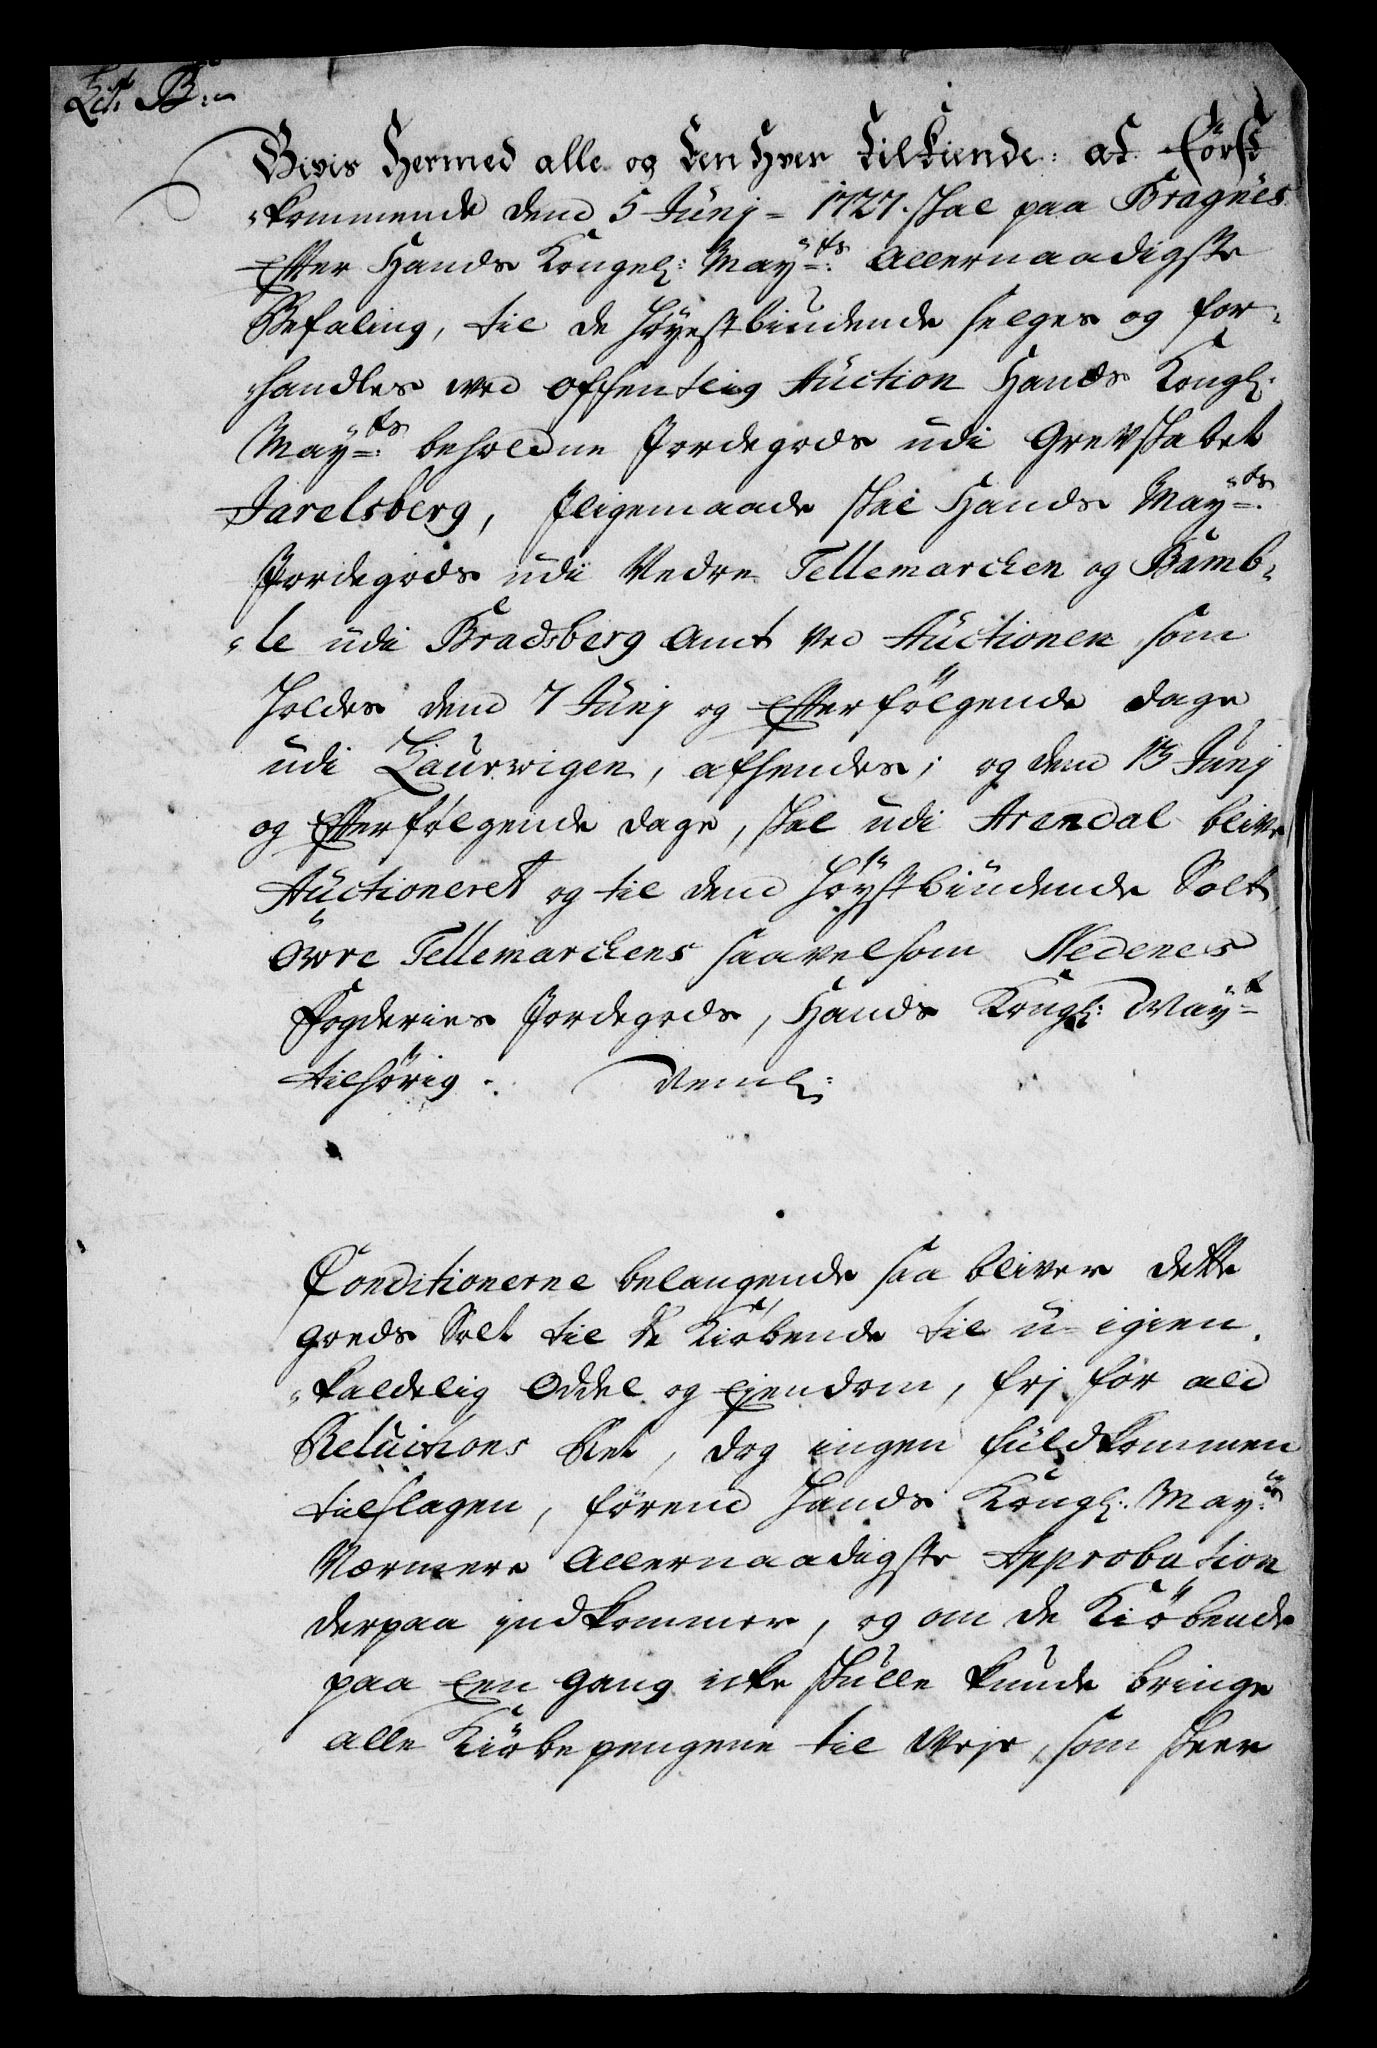 Lit: B:
Givis Hermed alle og Een Hver Tilkiende: at Först
„kommende dend 5 Junj – 1727. skal paa Bragnes
Effter Hands Kongel: May„ts: Allernaadigste
Befaling, til de Høyestbiudende selges og for„
„handles ved offentlig Auction Hands Kongl:
May„ts: beholdne Jordegods udi Grevskabet
Jarelsberg, Jligemaade skal Hands May„ts:
Jordegods udi Nedre Tellemarcken og Bamb„
„le udi Bradsberg Amt ved Auctionen som
Holdes dend 7 Junj og Effterfölgende dage
udi Laurwigen, afhendes; og dend 13 Junj
og Effterfølgende dage, skal udi Arendal blive
Auctioneret og til dend Høystbiudende Solt
Övre Tellemarckens saavelsom Nedenes
Fogderies Jordegods, Hands Kongl: May„t
tilhörig. Neml:
Conditionerne belangende saa bliver dette
Goeds Solt til de Kiöbende til u-igien„
„kaldelig Oddel og Ejendom, frj for ald
Reluitions Ret, dog ingen fuldkommen
tilslagen, førend Hands Kongl: May„ts
Nærmere Allernaadigste Approbation
derpaa jndkommer, og om de Kiöbende
paa Een gang icke skulle kunde bringe
alle Kiöbepengene til Veje, som skeer